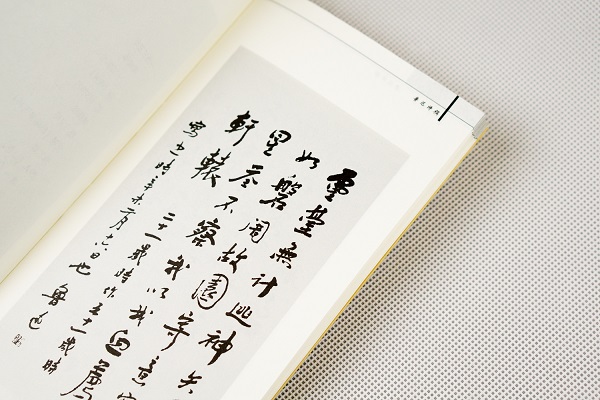 靈臺無計逃神矢
如磐闇故園寄意寒
星荃不察我以我血薦
軒轅 二十一歲時作五十一歲時
寫之時辛未二月十六日也 魯迅